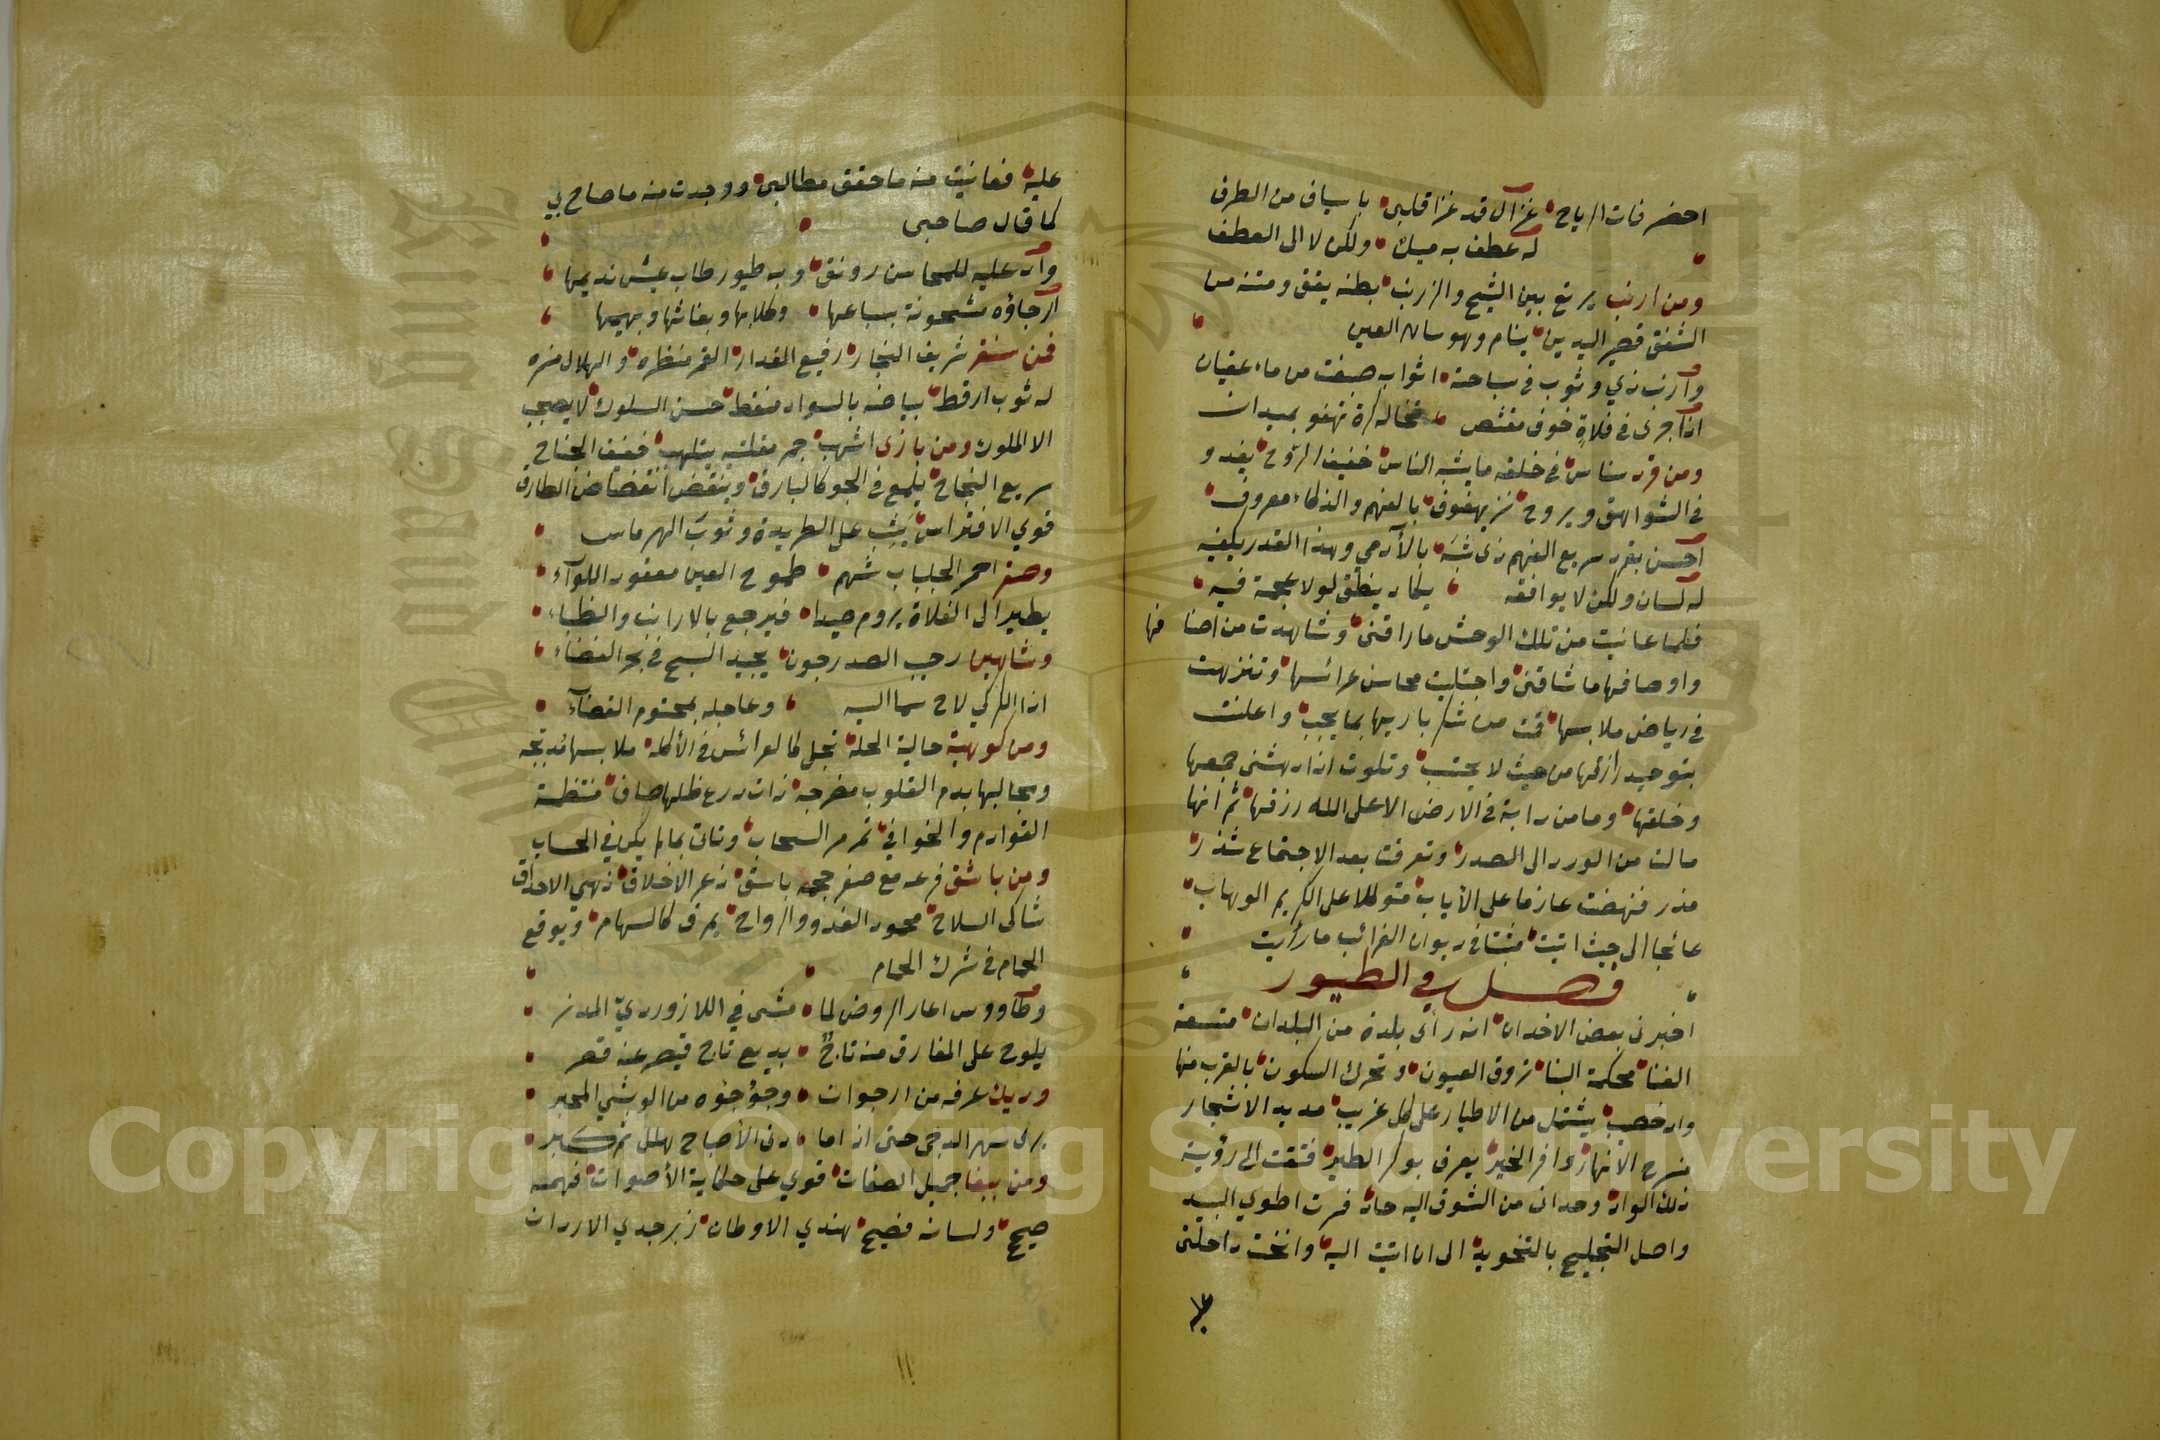 احضر فات الرياح غزال قد غزا قلبي باسياف من الطرف
له عطف به ميل ولكن لا الى العطف
ومن ارنب يرتع بين الشيح والزرنب بطنه يقق ومتنه من
الشفق قصير اليدين ينام وهو ساهر العين
وارنب ذي وثوب في سباحته اثوابه صبغت من ماء عقيان
اذا جرى في فلاة خوف مقتنص تخاله كرة تهفو بميدان
ومن قرد سناس في خلقه ما يشبه الناس خفيف الروح يغدو
في الشواهق ويروح نزيه غوف بالفهم والذكاء معروف
احسن بقرد سريع الفهم ذي شبه بالآدمي وهذا القدر يكفيه
له لسان ولكن لا يوافقه يكاد ينطق لولا عجمة فيه
فلما عانيت من تلك الوحش ما راقني وشاهدت من اصنافها
واوصافها ما شاقني واجتليت محاسن عرائسها وتنزهت
في رياض ملابسها قمت من شكر باريها بما يجب واعلنت
بتوحيد رازقها من حيث لا يحتسب وتلوت اذ ادهشني جمعها
وخلقها وما من دابة في الارض الا على الله رزقها ثم انها
مالت من الورد الى الصدر وتعرفت بعد الاجتماع شذر
مذر فنهضت عازما على الاياب متوكلا على الكريم الوهاب
عائجا الى حيث اتيت مثبتا في ديوان الغرائب ما رأيت
فصل في الطيور
اخبرني بعض الاخدان انه رأى بلدة من البلدان متسعة
الفنا محكمة البنا تروق العيون وتحرك السكون بالقرب منها
واد خصيب يشتمل من الاطيار على كل غريب مديد الاشجار
منسرح الانهار وافر الخير يعرف بوكر الطير فتقت الى رؤية
ذلك الواد وحداني من الشوق اليه حاد فسرت اطوي البيد
واصل التجليح بالتخويد الى ان اتيت اليه وانخت راحلتي
عليه فعانيت منه ما حقق مطالبي ووجدت منه ما صاح بي
كما قال صاحبي
واد عليه للمحاسن رونق وبه طيور طاب عيش نديمها
ارجاؤه مشحونة بسباعها وكلابها وبغاثها وبهيمها
فمن سنقر شريف النجار رفيع المقدار القمر منظره والهلال منسره
له ثوب ارقط بياضه بالسواد منقط حسن السلوك لا يصحب
الا الملوك ومن بازي اشهب جمر مقلته يتلهب خفيف الجناح
سريع النجاح يلمع في الجو كالبارق وينقض انقضاض الطارق
قوي الافتراس يثب على الطريدة وثوب الهرماس
وصقر احمر الجلباب شهم طموح العين معقود اللوآء
يطير الى الفلاة يروم صيدا فيرجع بالارانب والظباء
وشاهين رحيب الصدر جون يجيد السبح في بحر الفضاء
اذا الكركي لاح سما اليه وعاجله بمحتوم القضاء
ومن كوهية حالية الحلة تجلى كالعرائس في الأكلة ملابسها مدبجه
ومخالبها بدم القلوب مضرجه ذات درع ظلها صاف منتظمة
القوادم والخوافي تمر مر السحاب وتاتي بما لم يكن في الحساب
ومن باشق فرعه مع صغر حجمه باسق زعر الاخلاق ذهبي الاحداق
شاكي السلاح محمود الغدو والرواح يمرق كالسهام ويوقع
الحمام في شرك الحمام
وطاووس اعار الروض لما مشى في اللازوردي المدنر
يلوح على المفارق منه تاج بديع تاج قيصر عنه قصر
وديك عرفه من ارجوان وجؤجؤه من الوشي المحبر
يرى سهر الدجى حتى اذا ما دنى الأصباح هلل ثم كبر
ومن ببغا جميل الصفات قوي على حكاية الأصوات فهمه
صحيح ولسانه فصيح هندي الاوطان زبرجدي الاردان